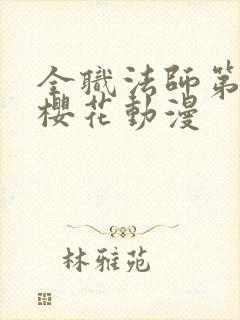 全職法師第
櫻花動漫
林雅苑